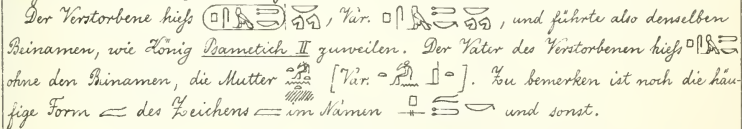 Der Verstorbene hieß , Var. , und führte also denselben
Beinamen, wie König Psametich II zuweilen. Der Vater des Verstorbenen hieß
ohne den Beinamen, die Mutter [Var. ]. Zu bemerken ist noch die häu-
fige Form des Zeichens im Namen und sonst.